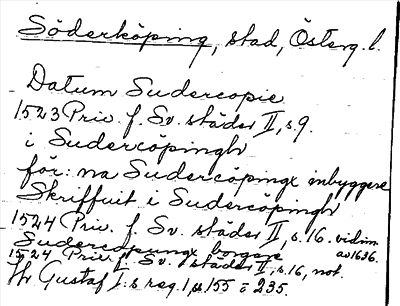 Söderköping, stad, Österg. l.
Datum Sudercopie
1523 Priv. f. Sv. städer II, s. 9.
i Suderköpingh
för: na Sudercöpinge inbyggere
Skriffuit i Sudercopingh
1524 Priv. f. Sv. städer II, s. 16. vidim
av 1636.
Sudercopungx borgare
1524 Priv. f. Sv. städer II, s. 16, not.
Gustaf I:s reg. 1 155 235